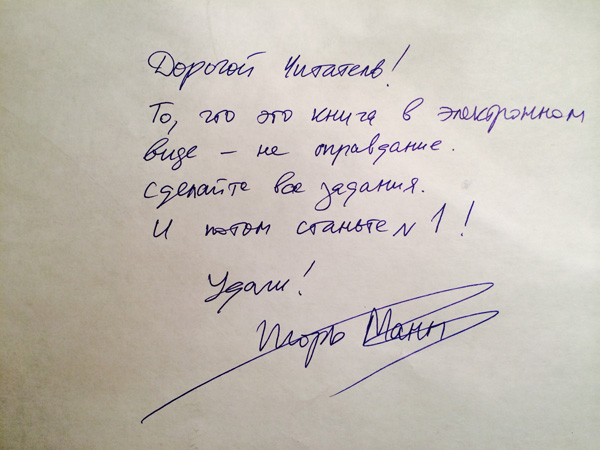 Дорогой Читатель!
То, что это книга в электронном
виде - не оправдание.
Сделайте все задания.
И потом станьте № 1!
Удачи!
Игорь Манн